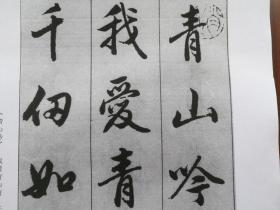 青山吟
我愛青
千仞如